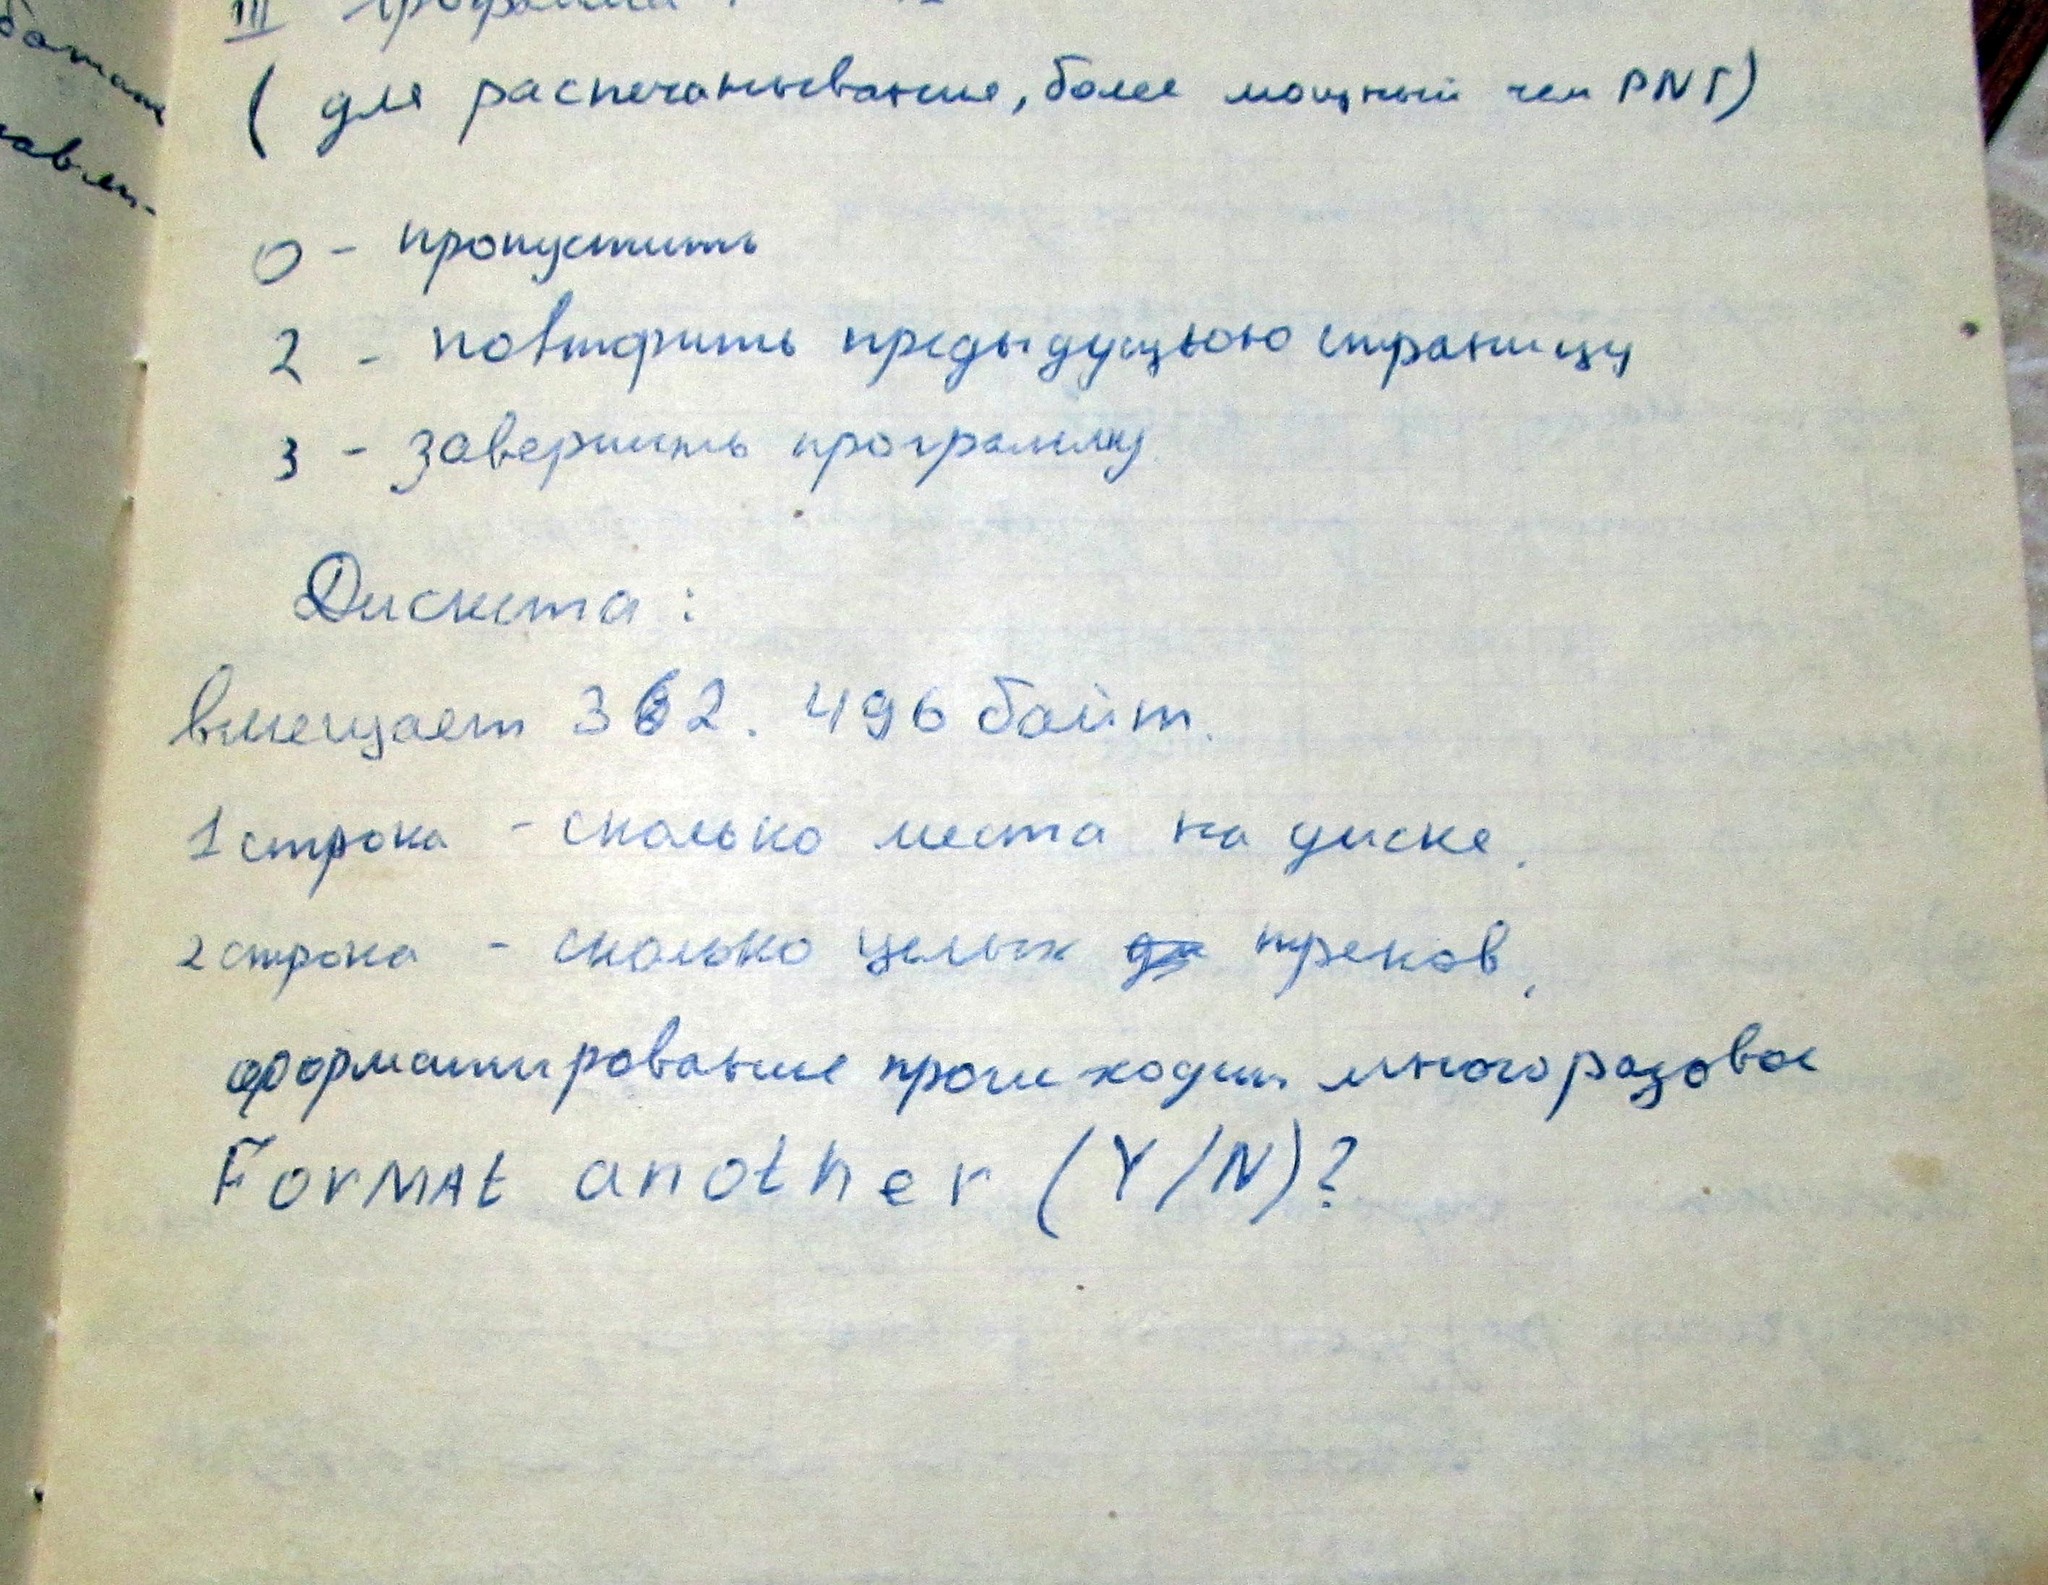 III программа
( для распечатывание, более мощный чем PNT)
0 - пропустить
2 - повторить предыдущьюю страницу
3 - завершить программу
Дискета:
вмещает 362.496 байт.
1 строка - сколько места на диске.
2 строка - сколько целых треков,
форматирование происходит многоразовое
Format another (Y/N)?